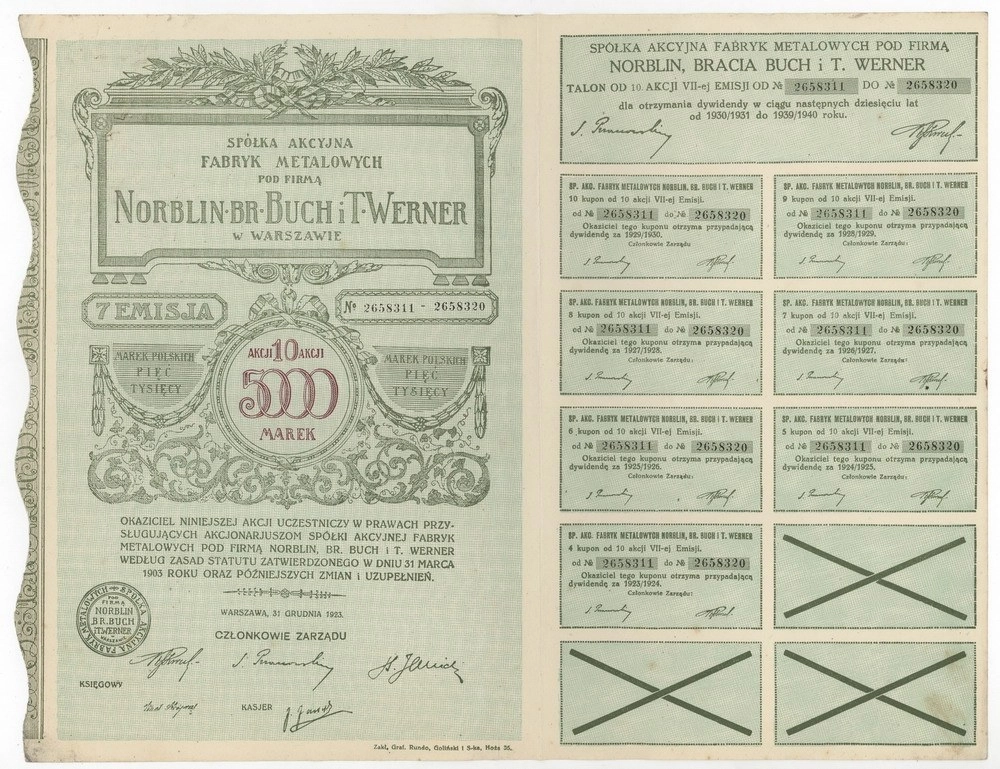 SPÓŁKA AKCYJNA
FABRYK METALOWYCH
POD FIRMĄ
NORBLIN·BR·BUCH i T·WERNER
W WARSZAWIE
7 EMISJA
№ 2658311 - 2658320
MAREK POLSKICH
PIĘĆ
TYSIĘCY
AKCJI 10 AKCJI
5000
MAREK
MAREK POLSKICH
PIĘĆ
TYSIĘCY
OKAZICIEL NINIEJSZEJ AKCJI UCZESTNICZY W PRAWACH PRZY-
SŁUGUJĄCYCH AKCJONARJUSZOM SPÓŁKI AKCYJNEJ FABRYK
METALOWYCH POD FIRMĄ NORBLIN, BR. BUCH i T. WERNER
WEDŁUG ZASAD STATUTU ZATWIERDZONEGO W DNIU 31 MARCA
1903 ROKU ORAZ PÓŹNIEJSZYCH ZMIAN i UZUPEŁNIEŃ.
WARSZAWA, 31 GRUDNIA 1923.
CZŁONKOWIE ZARZĄDU
SPÓŁKA AKCYJNA FABRYK METALOWYCH
POD
FIRMĄ
NORBLIN
BR. BUCH
i T. WERNER
W WARSZAWIE
KSIĘGOWY
KASJER
Zakł. Graf. Rundo, Goliński i S-ka, Hoża 35.
SPÓŁKA AKCYJNA FABRYK METALOWYCH POD FIRMĄ
NORBLIN, BRACIA BUCH i T. WERNER
TALON OD 10 AKCJI VII-ej EMISJI OD № 2658311 DO № 2658320
dla otrzymania dywidendy w ciągu następnych dziesięciu lat
od 1930/1931 do 1939/1940 roku.
SP. AKC. FABRYK METALOWYCH NORBLIN, BR. BUCH I T. WERNER
10 kupon od 10 akcji VII-ej Emisji.
od № 2658311 do № 2658320
Okaziciel tego kuponu otrzyma przypadającą
dywidendę za 1929/1930.
Członkowie Zarządu:
SP. AKC. FABRYK METALOWYCH NORBLIN, BR. BUCH I T. WERNER
9 kupon od 10 akcji VII-ej Emisji.
od № 2658311 do № 2658320
Okaziciel tego kuponu otrzyma przypadającą
dywidendę za 1928/1929.
Członkowie Zarządu:
SP. AKC. FABRYK METALOWYCH NORBLIN, BR. BUCH I T. WERNER
8 kupon od 10 akcji VII-ej Emisji.
od № 2658311 do № 2658320
Okaziciel tego kuponu otrzyma przypadającą
dywidendę za 1927/1928.
Członkowie Zarządu:
SP. AKC. FABRYK METALOWYCH NORBLIN, BR. BUCH I T. WERNER
7 kupon od 10 akcji VII-ej Emisji.
od № 2658311 do № 2658320
Okaziciel tego kuponu otrzyma przypadającą
dywidendę za 1926/1927.
Członkowie Zarządu:
SP. AKC. FABRYK METALOWYCH NORBLIN, BR. BUCH I T. WERNER
6 kupon od 10 akcji VII-ej Emisji.
od № 2658311 do № 2658320
Okaziciel tego kuponu otrzyma przypadającą
dywidendę za 1925/1926.
Członkowie Zarządu:
SP. AKC. FABRYK METALOWYCH NORBLIN, BR. BUCH I T. WERNER
5 kupon od 10 akcji VII-ej Emisji.
od № 2658311 do № 2658320
Okaziciel tego kuponu otrzyma przypadającą
dywidendę za 1924/1925.
Członkowie Zarządu:
SP. AKC. FABRYK METALOWYCH NORBLIN, BR. BUCH I T. WERNER
4 kupon od 10 akcji VII-ej Emisji.
od № 2658311 do № 2658320
Okaziciel tego kuponu otrzyma przypadającą
dywidendę za 1923/1924.
Członkowie Zarządu: